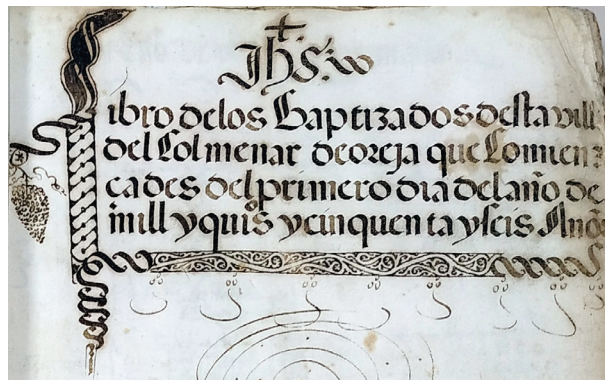 Jhs
Libro delos Baptizados desta vill
del Colmenar de oreja que Comien
ca des del primero dia del año de
mill y quis y cinquenta y seis Años